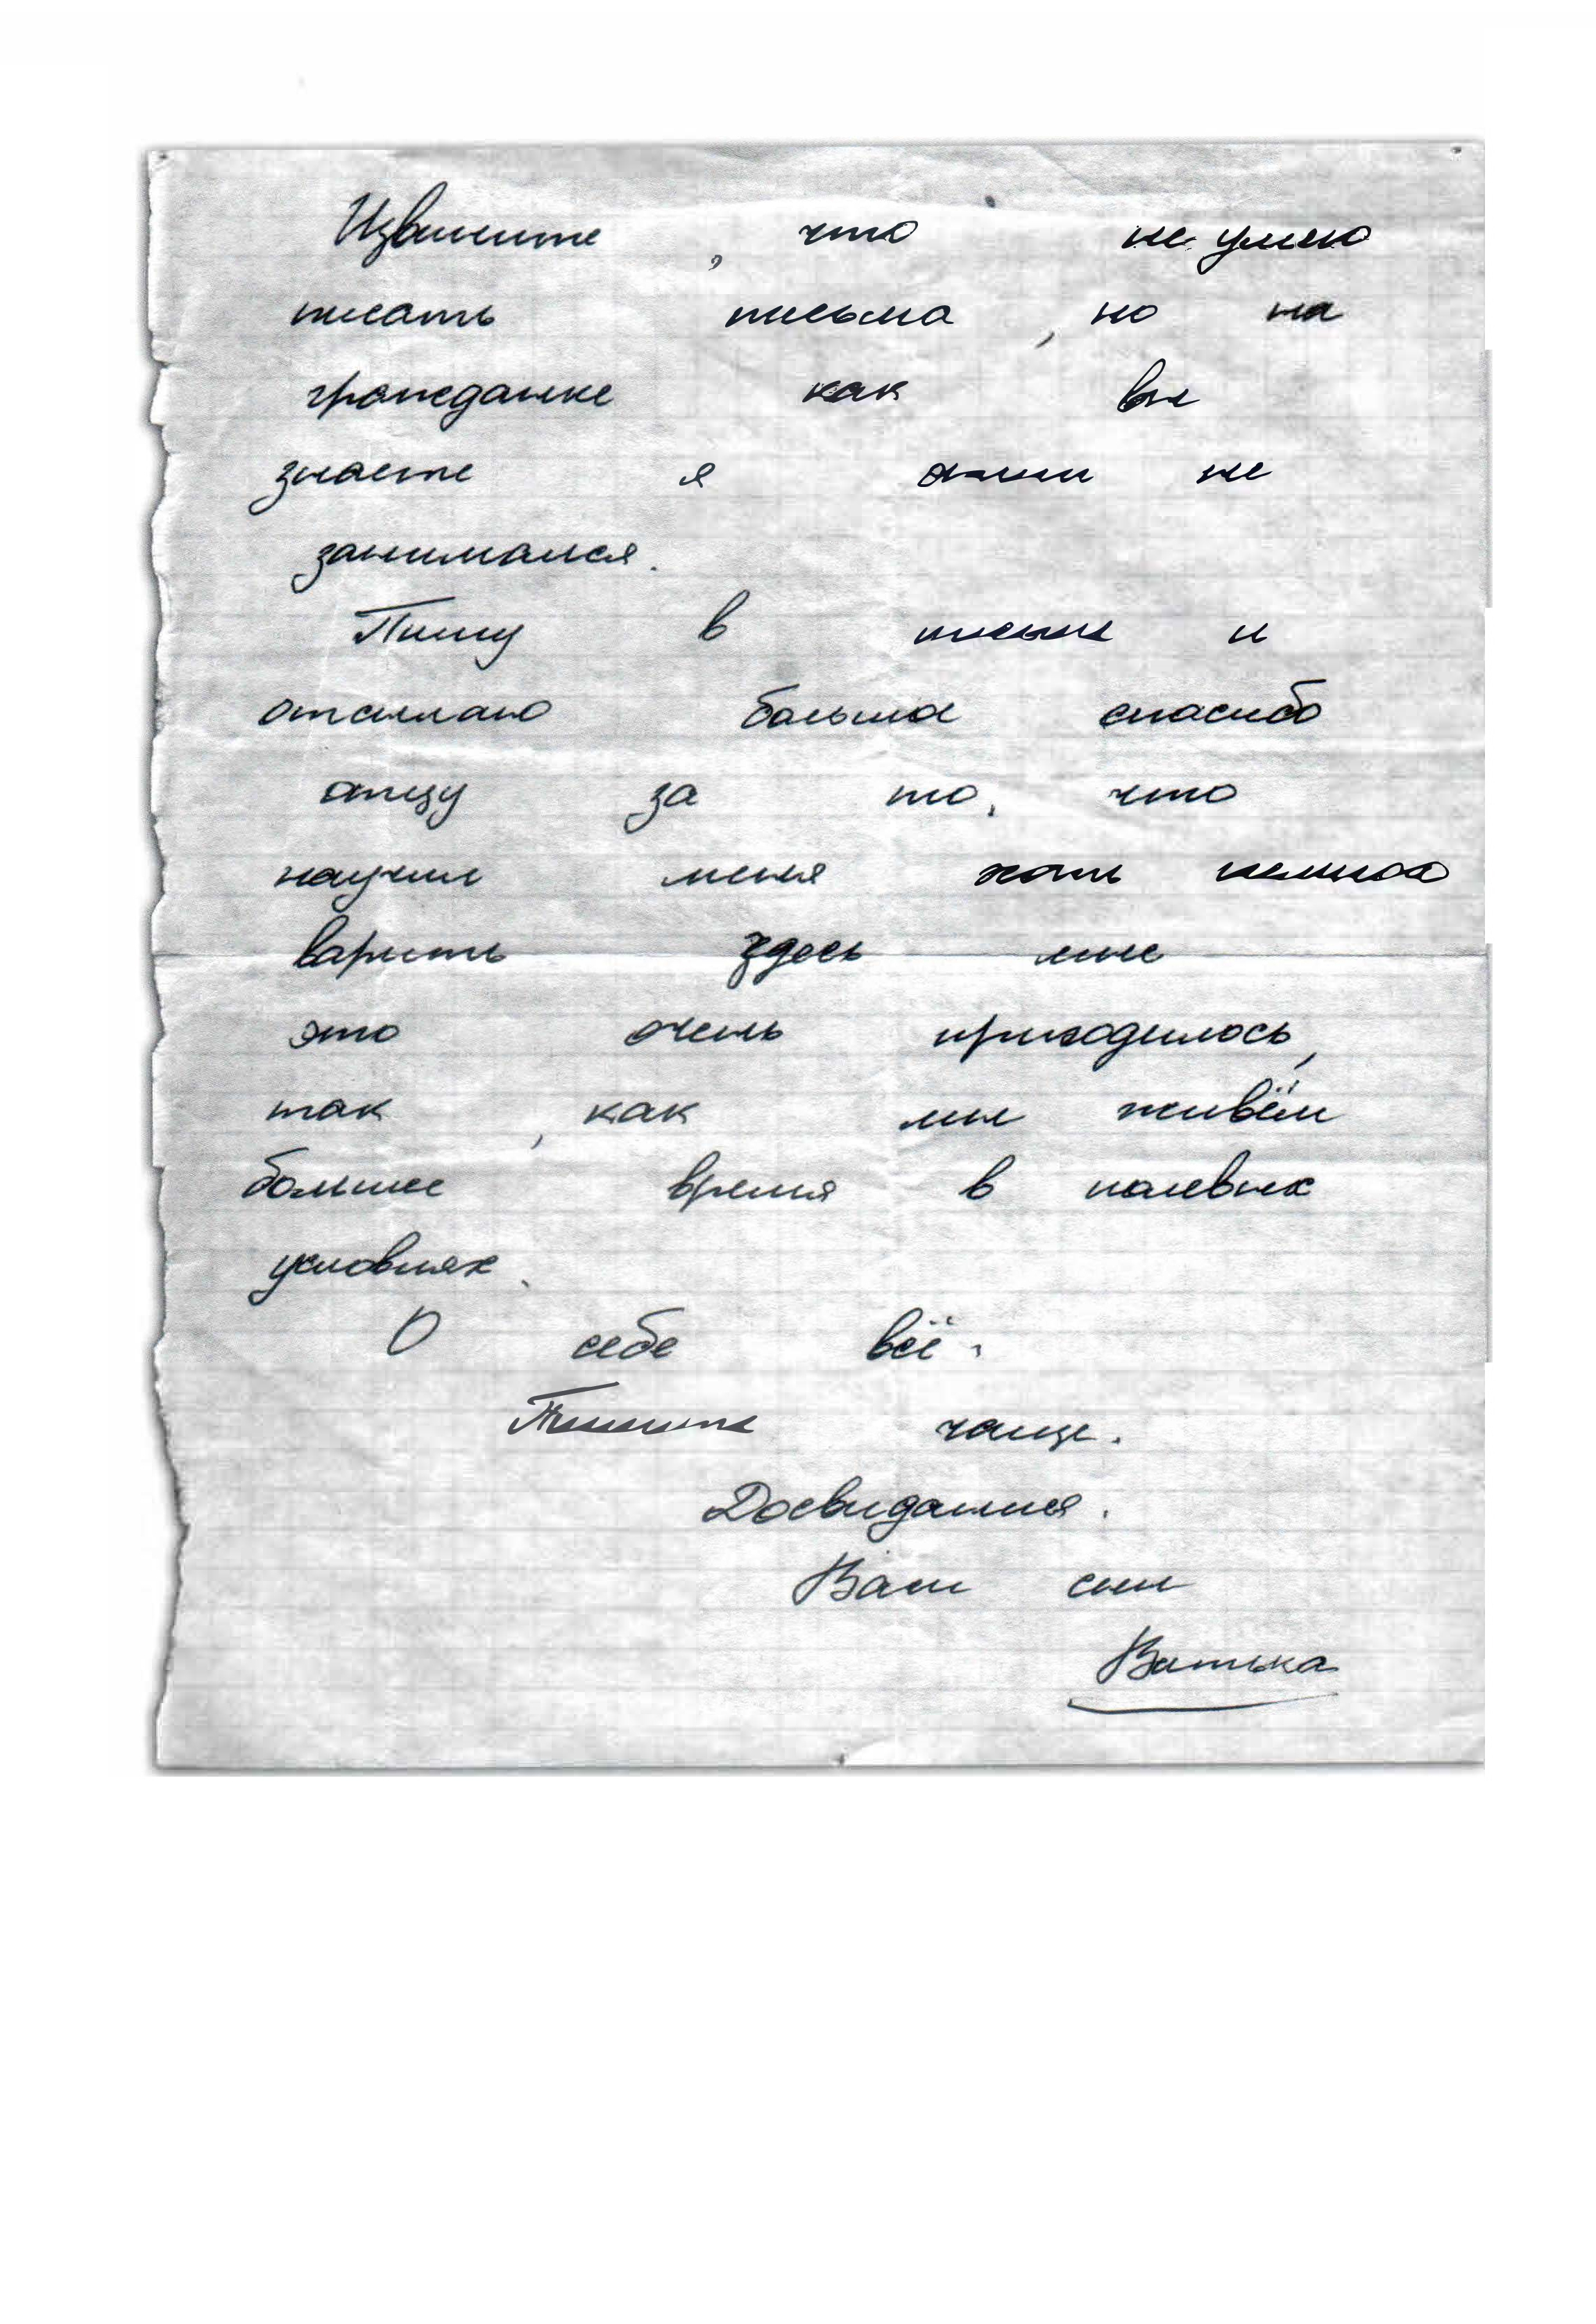 Извините, что не умею
писать письма, но на
гражданке как вы
знаете я этим не
занимался.
Пишу в письме и
отсылаю большое спасибо
отцу за то, что
научил меня хоть немного
варить здесь мне
это очень пригодилось,
так, как мы живём
большее время в полевых
условиях.
О себе всё.
Пишите чаще.
Досвидания.
Ваш сын
Витька